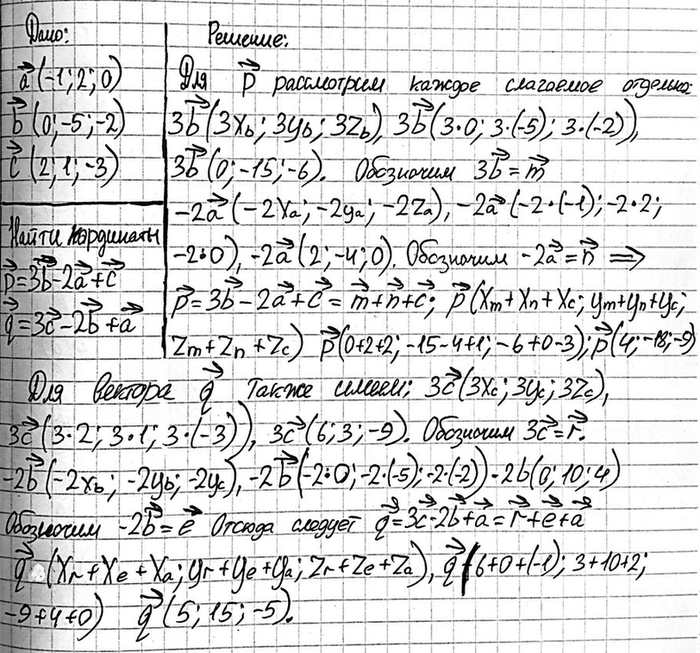 Дано:
a⃗ (-1; 2; 0)
b⃗ (0; -5; -2)
c⃗ (2; 1; -3)
Найти координаты
p⃗=3b⃗-2a⃗+c⃗
q⃗=3c⃗-2b⃗+a⃗
Решение:
Для p⃗ рассмотрим каждое слагаемое отдельно
3b⃗(3x_b; 3y_b; 3z_b), 3b⃗(3·0; 3·(-5); 3·(-2)),
3b⃗(0; -15; -6). Обозначим 3b⃗=m⃗
-2a⃗(-2x_a; -2y_a; -2z_a), -2a⃗(-2·(-1); -2·2;
-2·0), -2a⃗(2; -4; 0). Обозначим -2a⃗=n⃗ ⇒
p⃗=3b⃗-2a⃗+c⃗=m⃗+n⃗+c⃗; p⃗(x_m+x_n+x_c; y_m+y_n+y_c;
z_m+z_n+z_c) p⃗(0+2+2; -15-4+1; -6+0-3); p⃗(4; -18; -9)
Для вектора q⃗ также имеем; 3c⃗(3x_c; 3y_c; 3z_c),
3c⃗(3·2; 3·1; 3·(-3)), 3c⃗(6; 3; -9). Обозначим 3c⃗=r⃗.
-2b⃗(-2x_b; -2y_b; -2y_c), -2b⃗(-2·0; -2·(-5); -2·(-2)) -2b(0; 10; 4)
Обозначим -2b⃗=e⃗ Отсюда следует q⃗=3c⃗-2b⃗+a⃗=r⃗+e⃗+a⃗
q⃗ (x_r+x_e+x_a; y_r+y_e+y_a; z_r+z_e+z_a), q⃗(6+0+(-1); 3+10+2;
-9+4+0) q⃗(5; 15; -5).